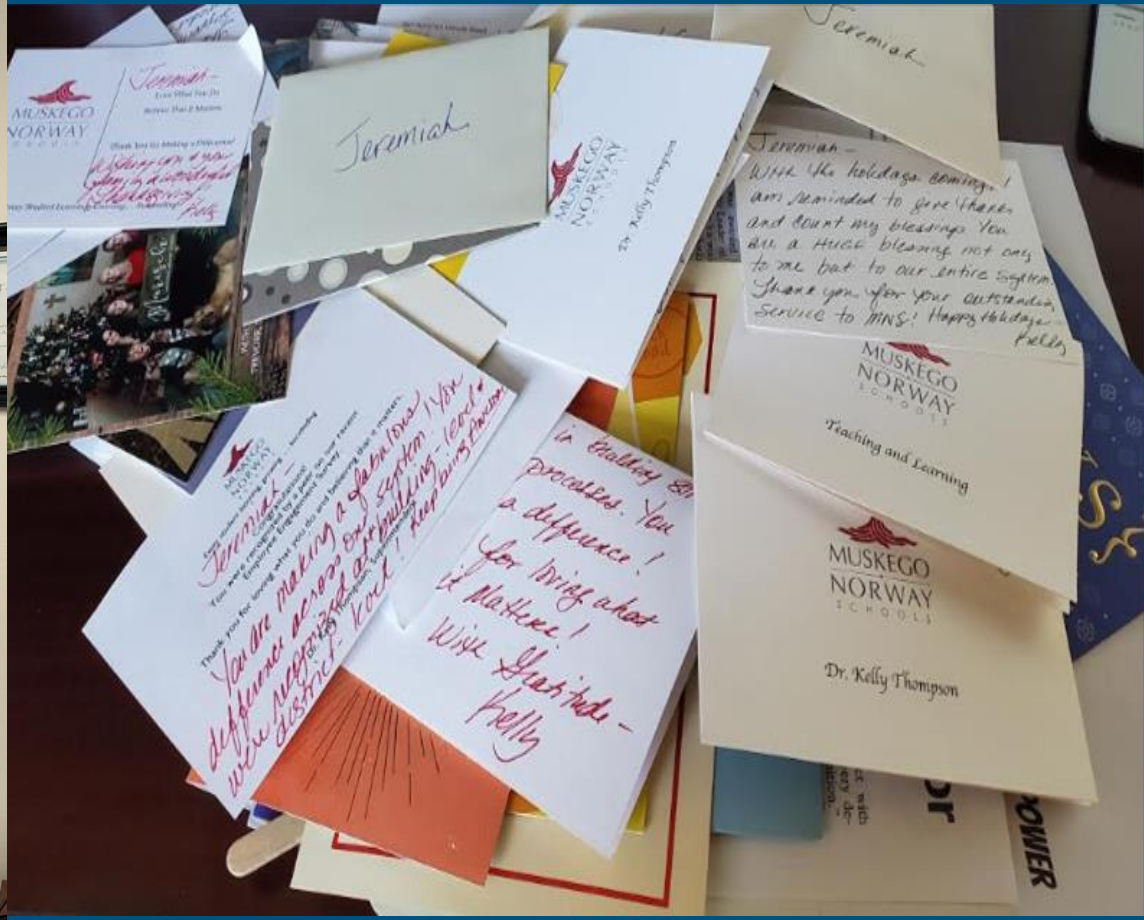 MUSKEGO
NORWAY
SCHOOLS
Jeremiah-
Love What You Do
Believe That It Matters
Thank You for Making a Difference!
Wishing you & your
a wonderful
Thanksgiving!
Kelly
Jeremiah
MUSKEGO
NORWAY
SCHOOLS
Dr. Kelly Thompson
Jeremiah
Jeremiah-
With the holidays coming, I
am reminded to give thanks
and count my blessings You
are a HUGE blessing not only
to me but to our entire system
Thank you for your outstanding
service to MNS! Happy Holidays
Kelly
MUSKEGO
NORWAY
SCHOOLS
Teaching and Learning
MUSKEGO
NORWAY
SCHOOLS
Dr. Kelly Thompson
MUSKEGO
NORWAY
SCHOOLS
Jeremiah-
Congratulations!
You were recognized by a peer on our recent
Employee Engagement Survey
Thank you for loving what you do and believing that it matters.
Dr. Kelly Thompson, Superintendent
You are making a fabulous
difference across our system! You
were recognized at building-level &
district-level! Keep being Awesome
in building
processes. You
a difference!
for loving what
it Matters!
With Gratitude-
Kelly
or
POWER